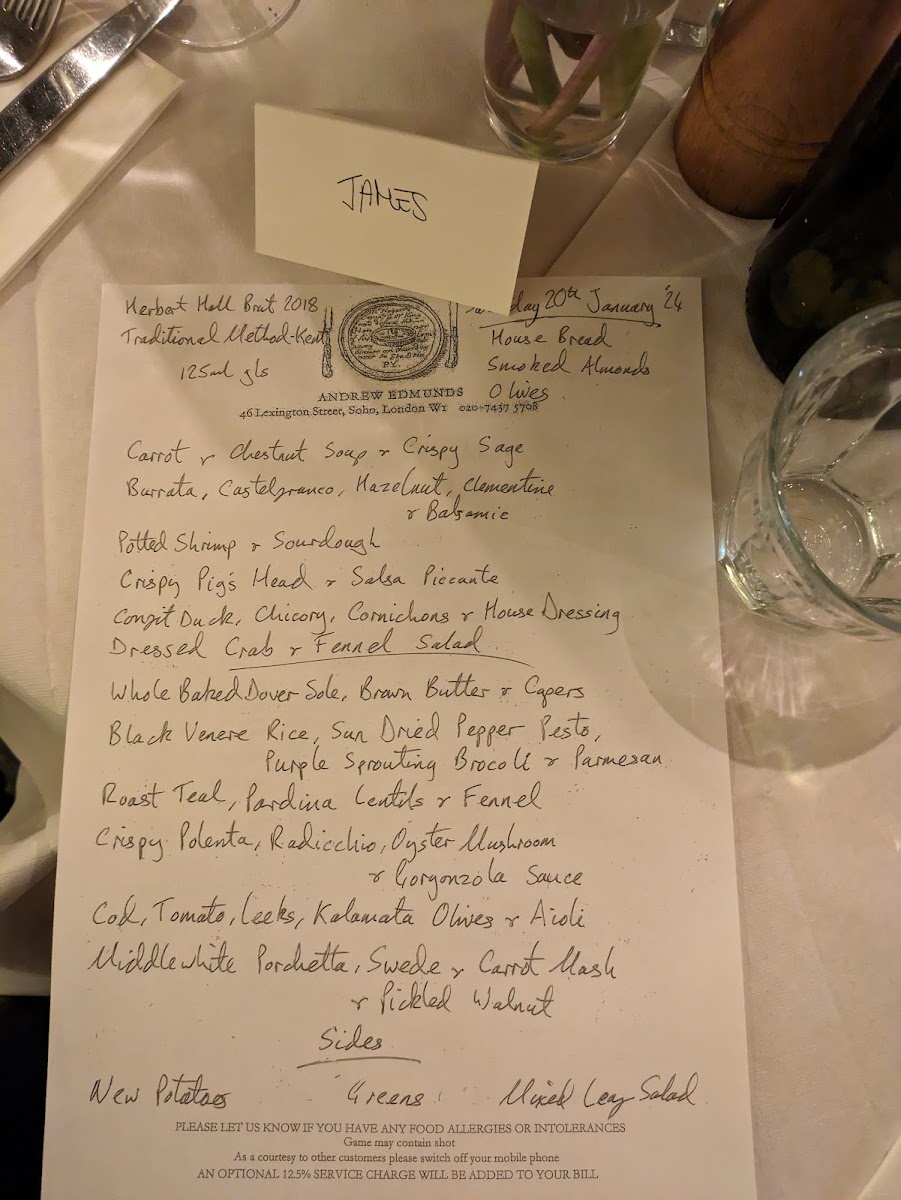 JAMES
Herbert Hall Brut 2018
Traditional Method-Kent
125ml gls
20th January '24
House Bread
Smoked Almonds
Olives
ANDREW EDMUNDS
46 Lexington Street, Soho, London W1 020-7437 5708
Carrot & Chestnut Soup & Crispy Sage
Burrata, Castelfranco, Hazelnut, Clementine
& Balsamic
Potted Shrimp & Sourdough
Crispy Pig's Head & Salsa Piccante
Confit Duck, Chicory, Cornichons & House Dressing
Dressed Crab & Fennel Salad
Whole Baked Dover Sole, Brown Butter & Capers
Black Venere Rice, Sun Dried Pepper Pesto,
Purple Sprouting Brocoli & Parmesan
Roast Teal, Pardina Lentils & Fennel
Crispy Polenta, Radicchio, Oyster Mushroom
& Gorgonzola Sauce
Cod, Tomato, Leeks, Kalamata Olives & Aioli
Middlewhite Porchetta, Swede & Carrot Mash
& Pickled Walnut
Sides
New Potatoes Greens Mixed Leaf Salad
PLEASE LET US KNOW IF YOU HAVE ANY FOOD ALLERGIES OR INTOLERANCES
Game may contain shot
As a courtesy to other customers please switch off your mobile phone
AN OPTIONAL 12.5% SERVICE CHARGE WILL BE ADDED TO YOUR BILL